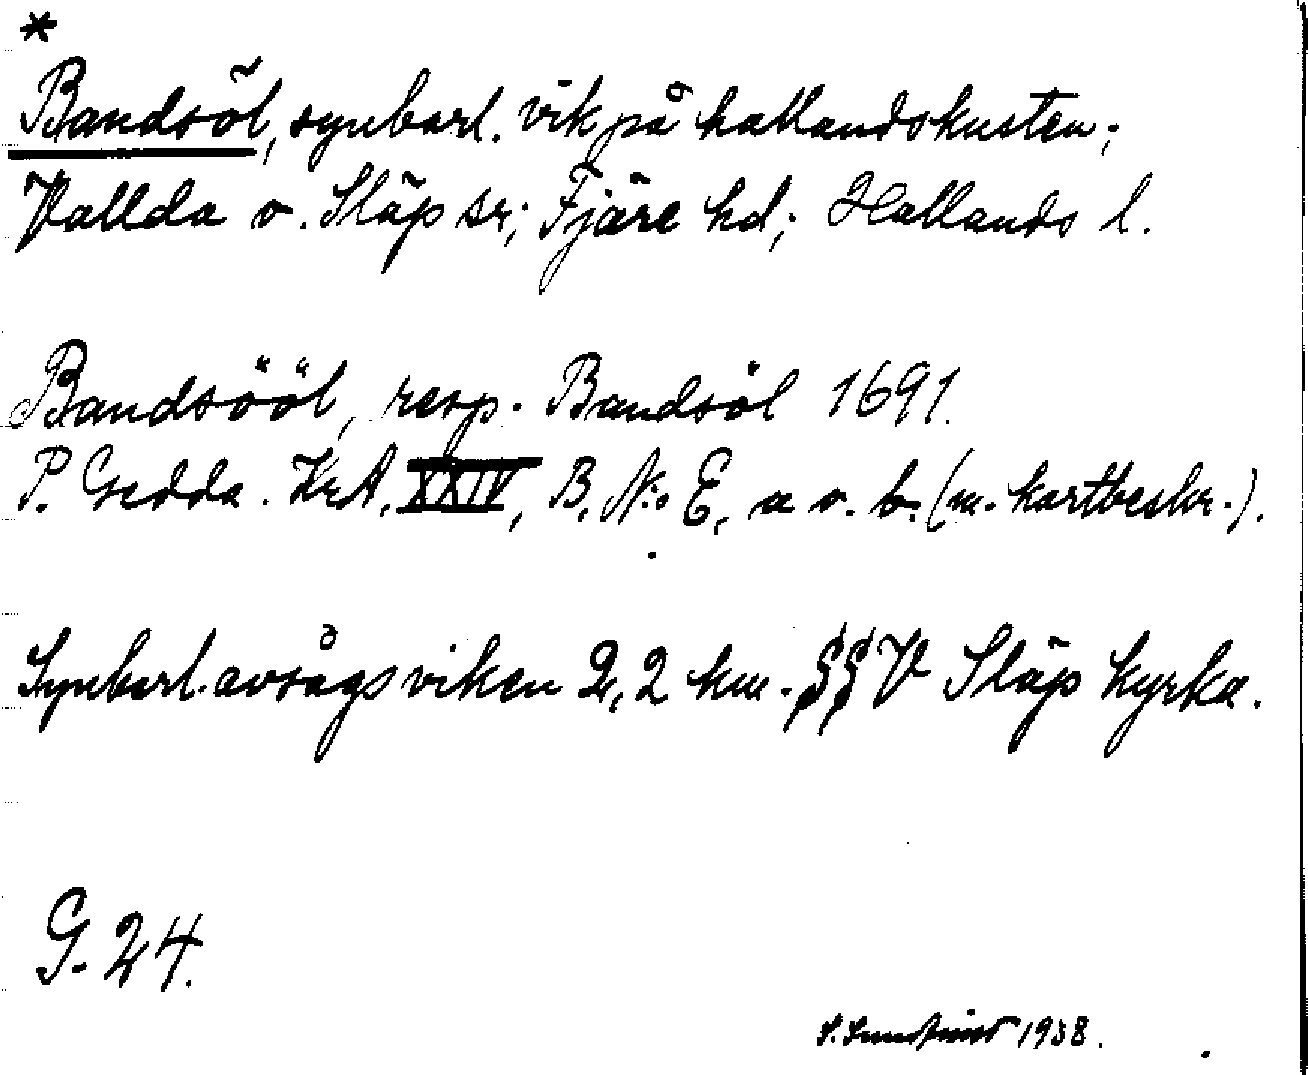 *
Bandsöl, synbarl. vik på hallandskusten;
Vallda o. Släp sr; Fjäre hd; Hallands l.
Bandsööl, resp. Bandsöl 1691.
P. Gedda. KrA. XXIV, B. N:o E, a o. b. (m. kartbeskr.).
Synbarl. avsågs viken 2,2 km. §§ V Släp kyrka.
G. 24.
1938.